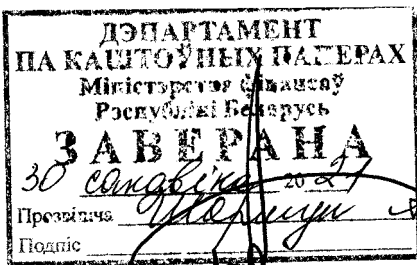 ДЭПАРТАМЕНТ
ПА КАШТОЎНЫХ ПАПЕРАХ
Міністэрства фінансаў
Рэспублікі Беларусь
ЗАВЕРАНА
30 20 21
Прозвішча
Подпіс